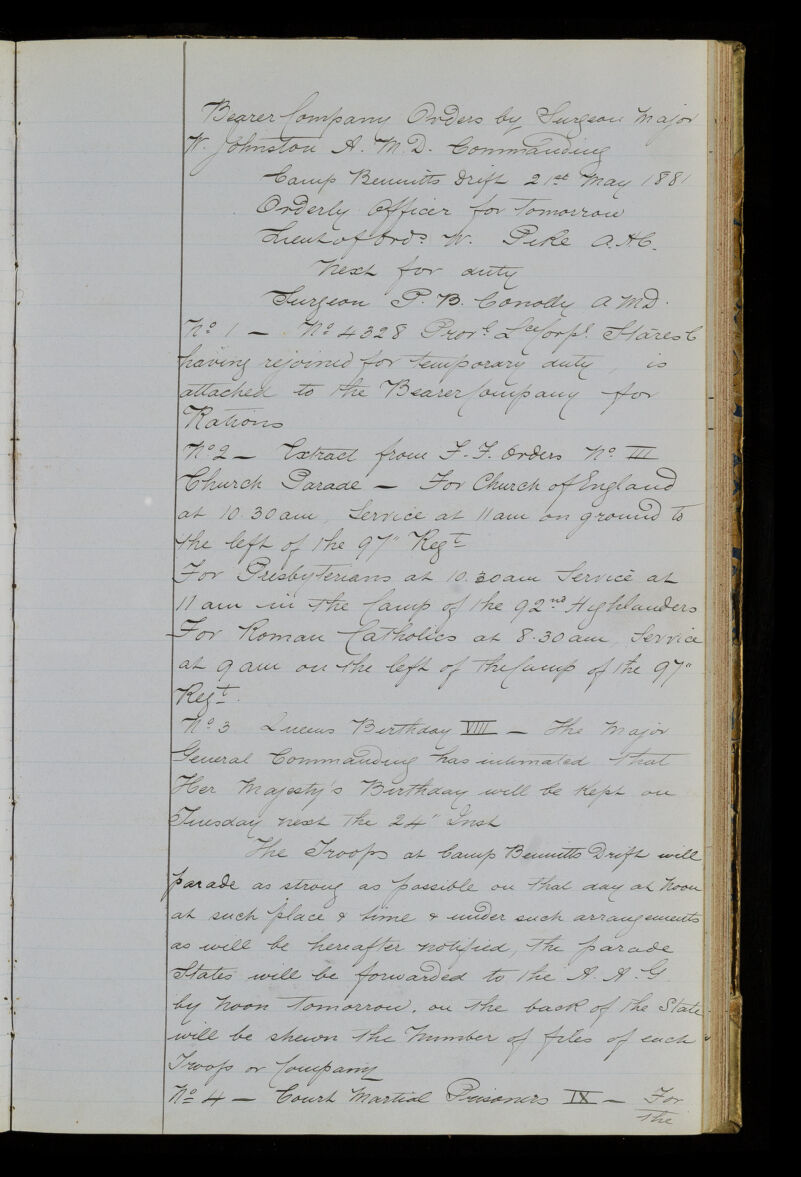 Bearer Company Orders by Surgeon Major
W. Johnston A. M. D. Commanding
Camp Bennitts Drift 21st May 1881
Orderly Officer for Tomorrow
Lieut of Ords W. Pike A.H.C.
Next for duty
Surgeon P. B. Conolly A M D.
No 1 — No 4328 Provl Lce Corpl Stares C
having rejoined for temporary duty, is
attached to the Bearer Company for
Rations
No 2 — Extract from F. F. Orders No. III
Church Parade — For Church of England
at 10.30 am, Service at 11 am on ground to
the left of the 97" Regt
For Presbyterians at 10.30 am Service at
11 am in the Camp of the 92nd Highlanders
For Roman Catholics at 8.30 am, Service
at 9 am on the left of the Camp of the 97"
Regt.
No 3 Queens Birthday VIII — The Major
General Commanding has intimated that
Her Majesty's Birthday will be kept on
Tuesday next the 24" Inst
The Troops at Camp Bennitts Drift will
parade as strong as possible on that day at Noon
at such place & time & under such arrangements
as will be hereafter notified, the parade
States will be forwarded to the A. A. G.
by Noon Tomorrow. on the back of the State
will be shewn the Number of files of each
Troop or Company
No 4 — Court Martial Prisoners IX — For
the